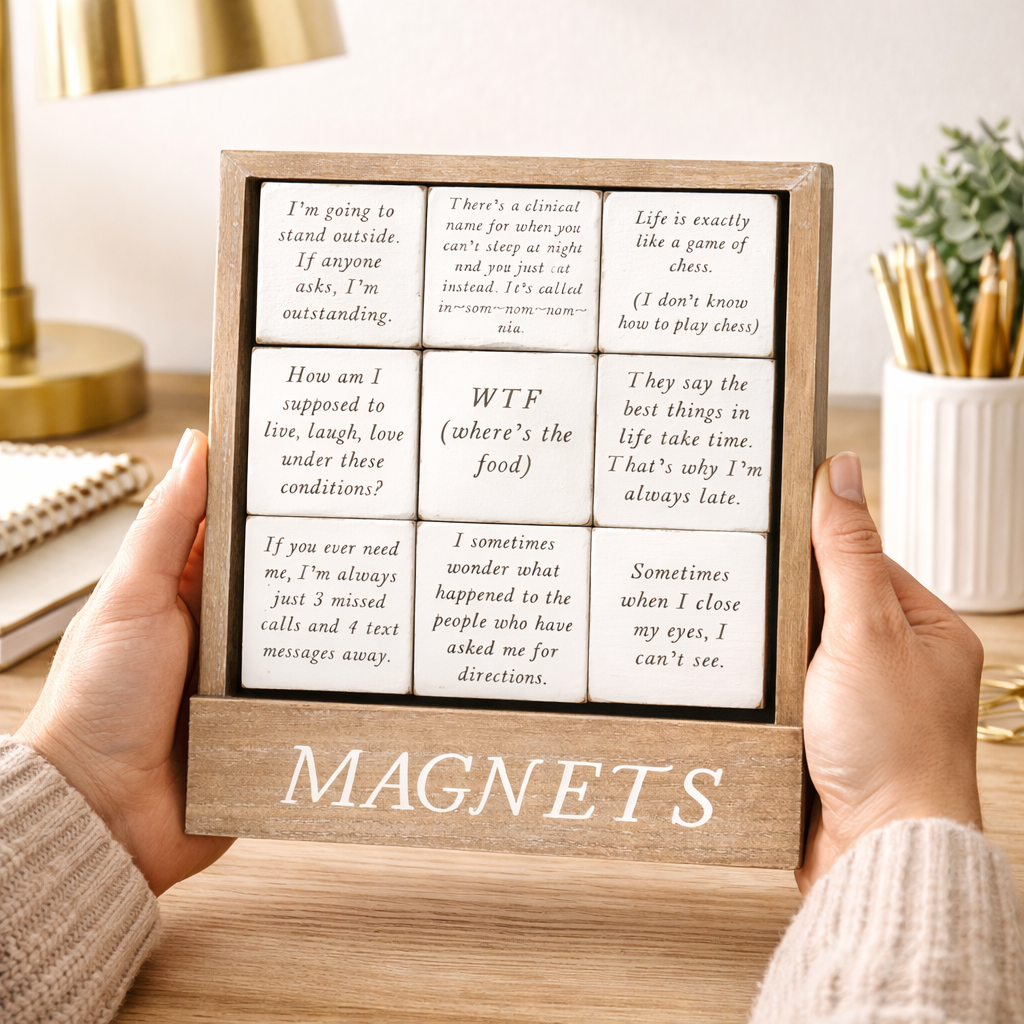 I'm going to
stand outside.
If anyone
asks, I'm
outstanding.
There's a clinical
name for when you
can't sleep at night
nnd you just eat
instead. It's called
in~som~nom~nam~
nia.
Life is exactly
like a game of
chess.
(I don't know
how to play chess)
How am I
supposed to
live, laugh, love
under these
conditions?
WTF
(where's the
food)
They say the
best things in
life take time.
That's why I'm
always late.
If you ever need
me, I'm always
just 3 missed
calls and 4 text
messages away.
I sometimes
wonder what
happened to the
people who have
asked me for
directions.
Sometimes
when I close
my eyes, I
can't see.
MAGNETS